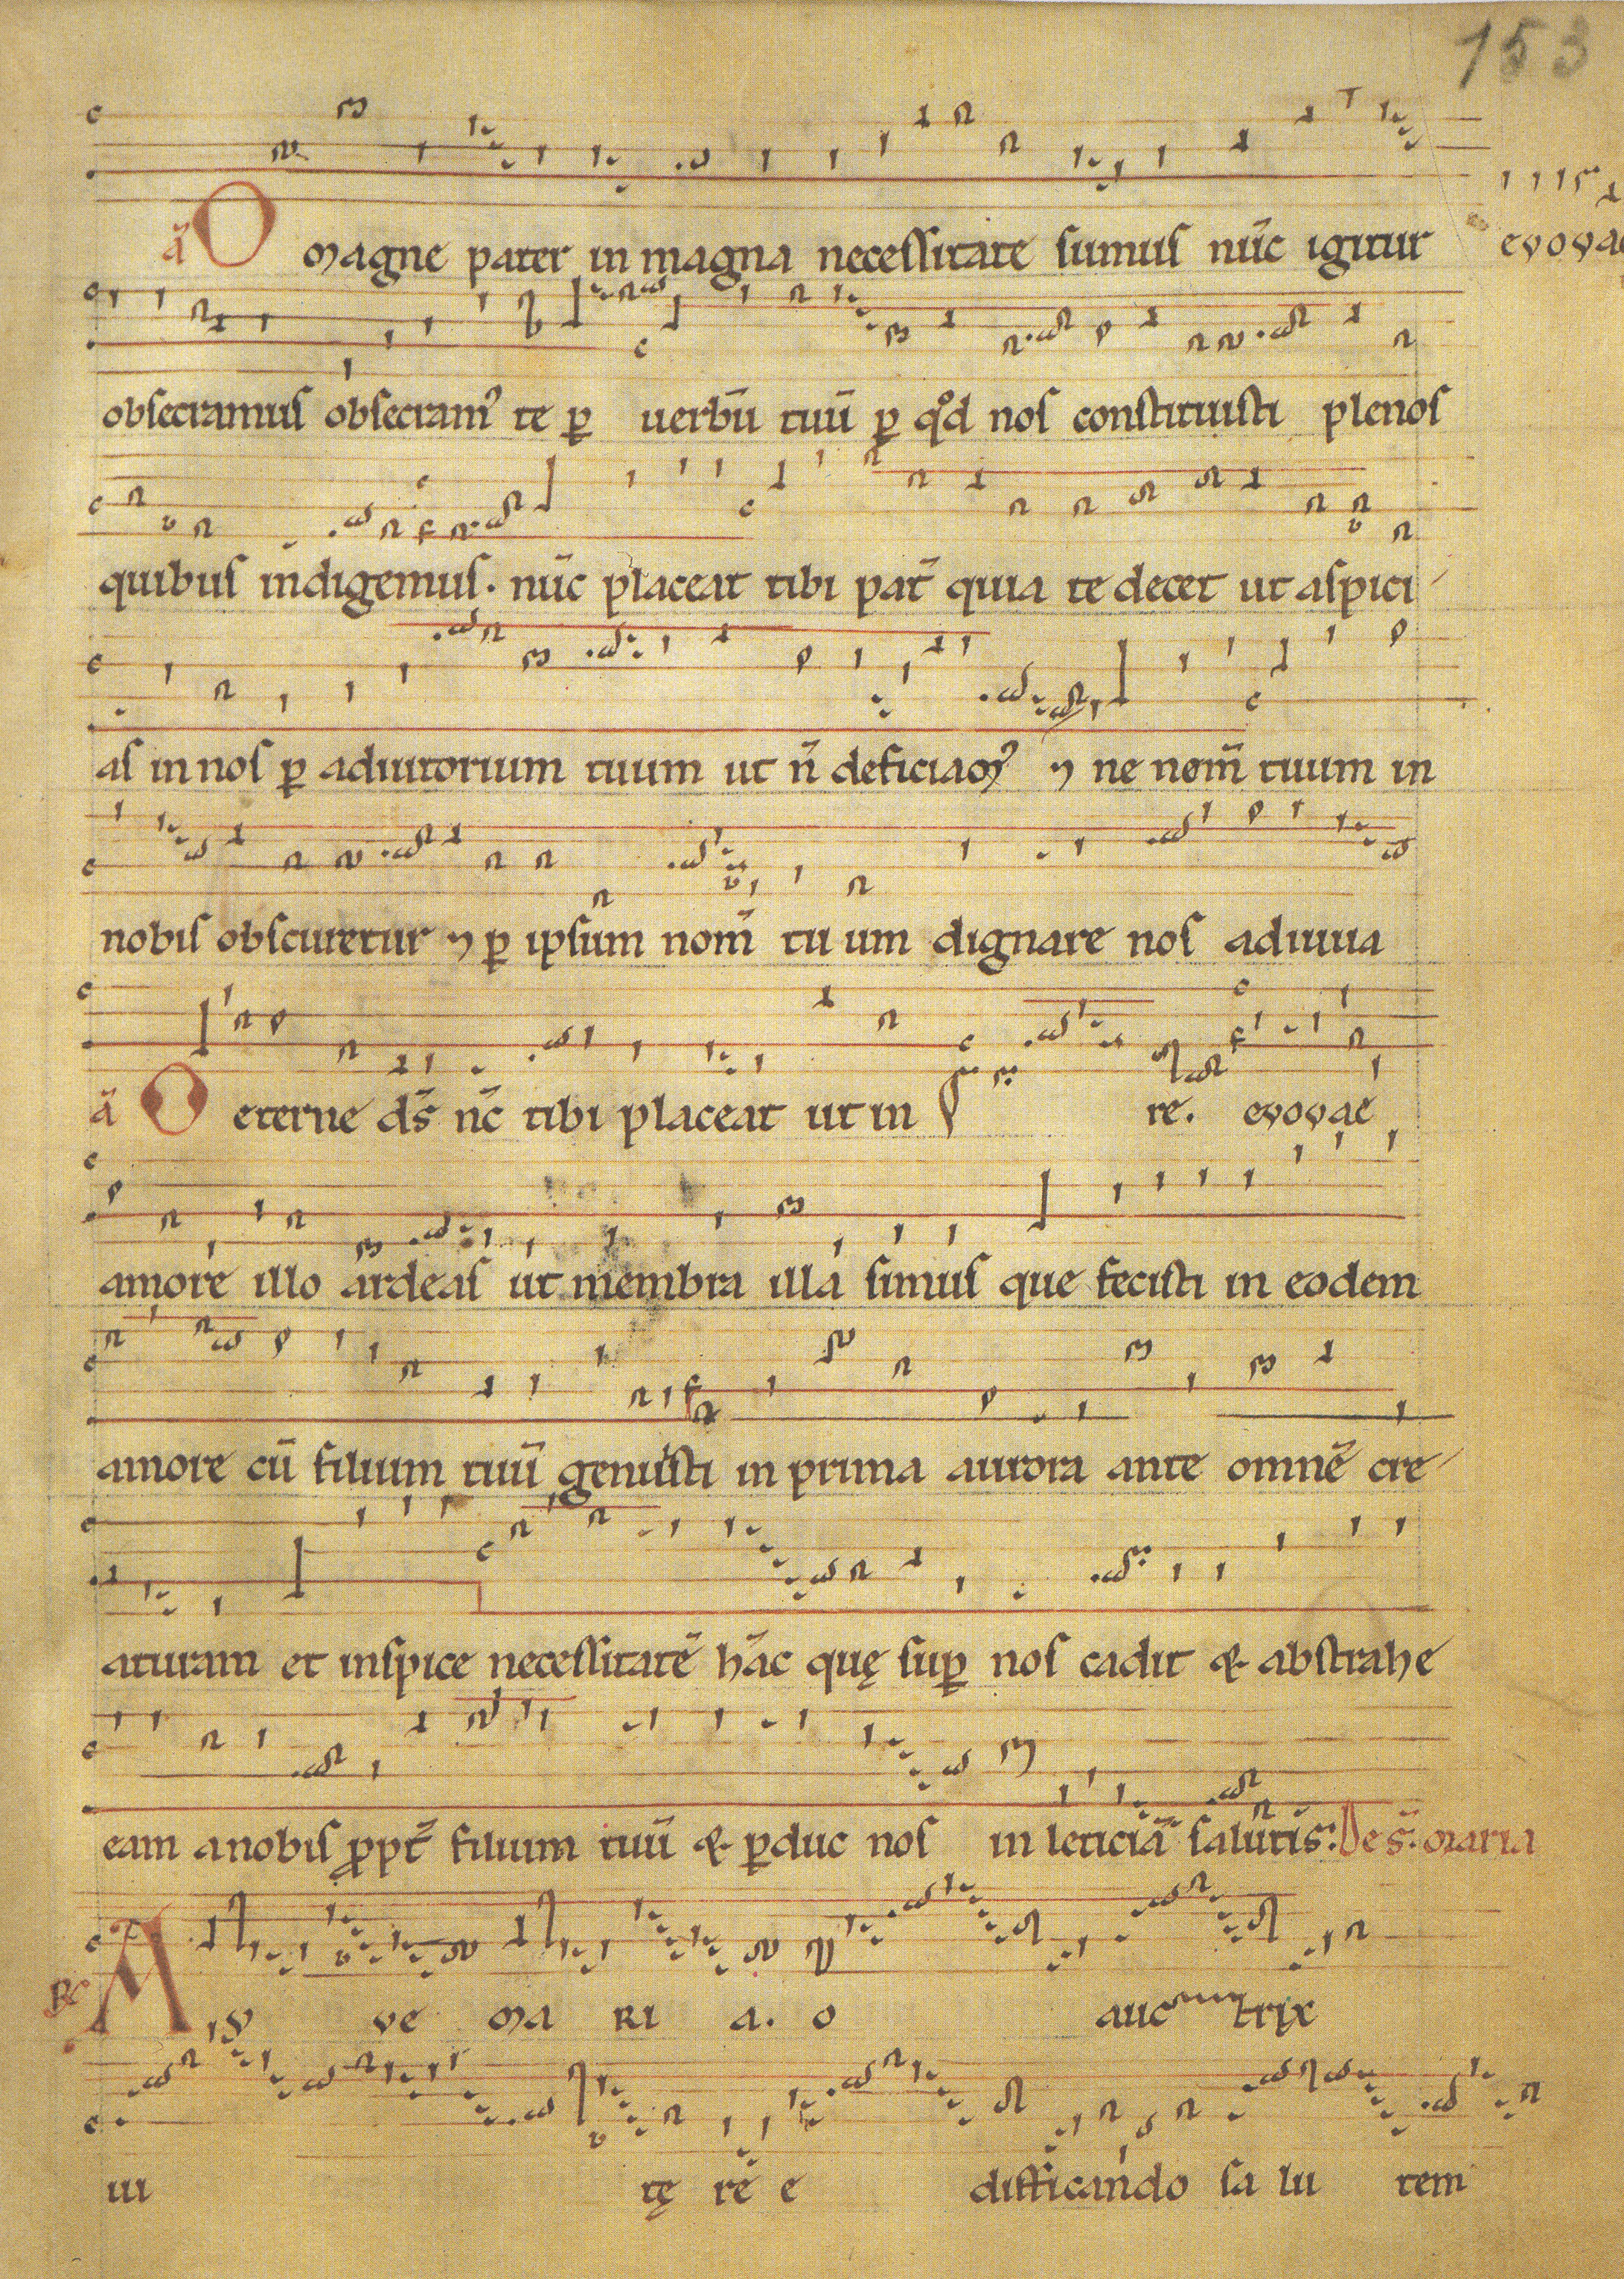 153
ā O magne pater in magna necessitate sumus nūc igitur evovae
obsecramus obsecramꝰ te ꝑ uerbū tuū ꝑ qͦd nos constituisti plenos
quibus indigemus. nūc placeat tibi pat̄ quia te decet ut aspici
as in nos ꝑ adiutorium tuum ut n̄ deficiamꝰ ⁊ ne nom̄ tuum in
nobis obscuretur ⁊ ꝑ ipsum nom̄ tu um dignare nos adiuua
ā O eterne ds̄ nc̄ tibi placeat ut in re. evovae
amore illo ardeas ut membra illa simus que fecisti in eodem
amore cū filium tuū genuisti in prima aurora ante omnē cre
aturam et inspice necessitatē hāc quę suꝑ nos cadit & abstrahe
eam a nobis ꝓpt̄ filium tuū & ꝑduc nos in leticiā salutis. De s. maria
℟ A ve ma ri a. o auc trix
ui tę re e difficando sa lu tem